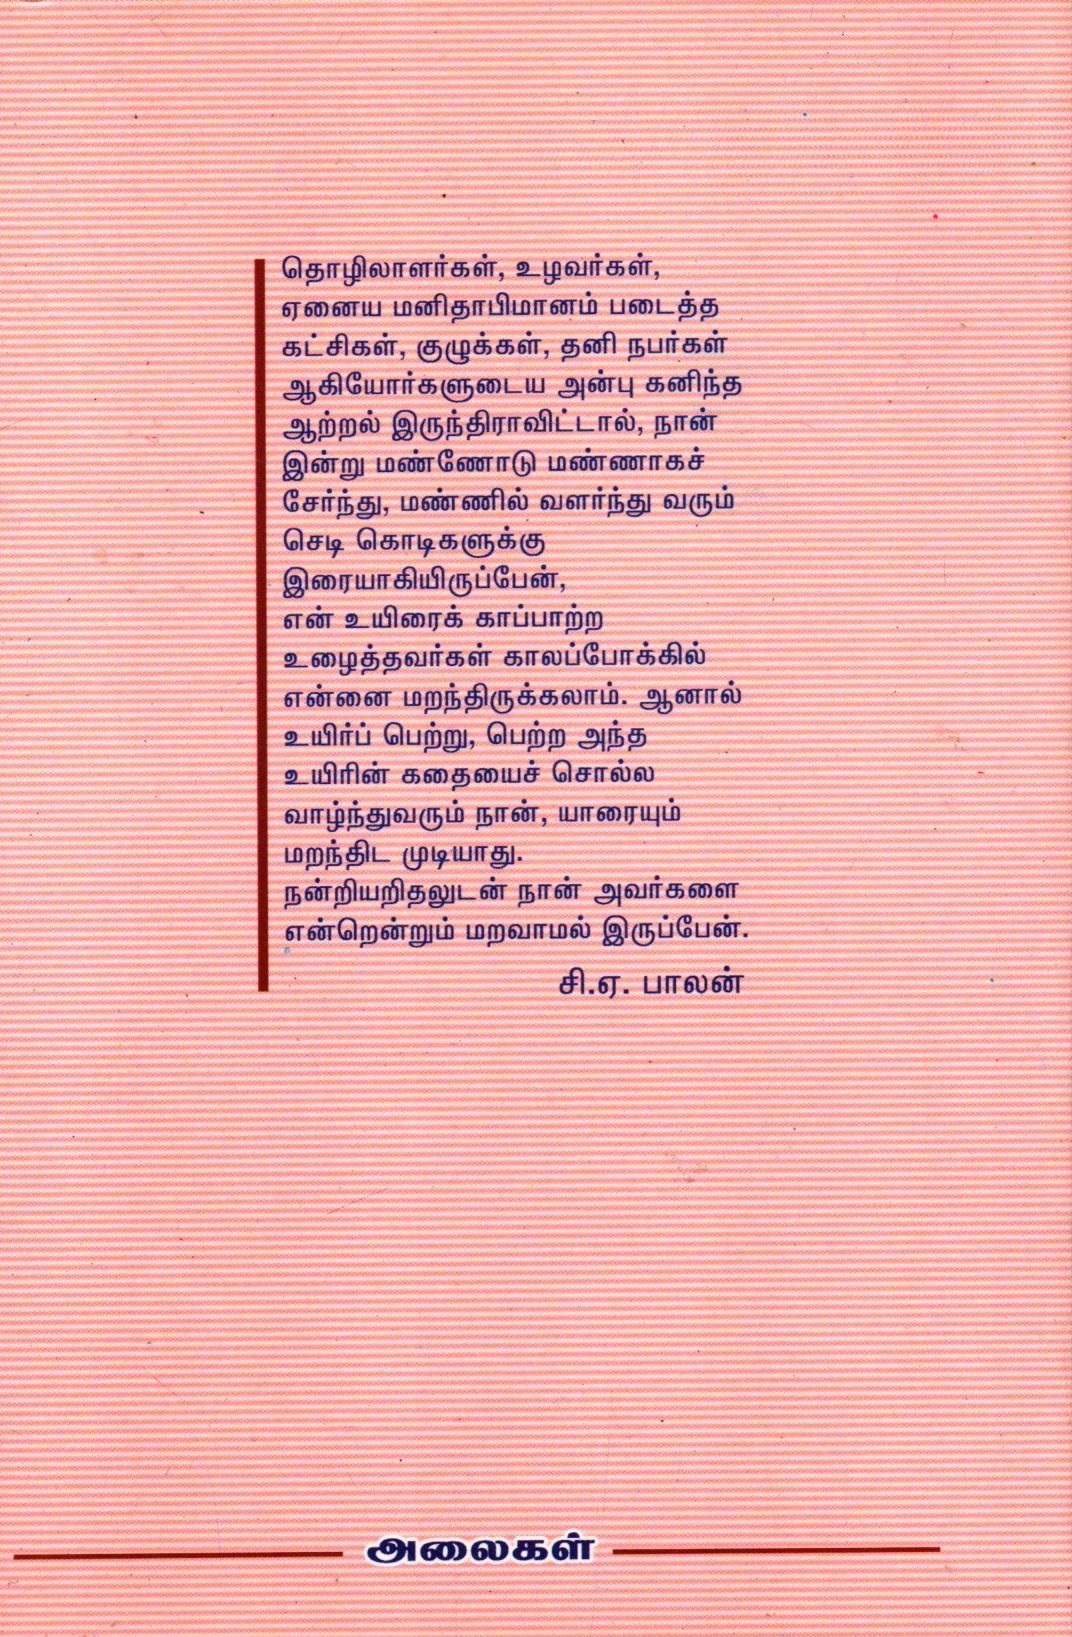 தொழிலாளர்கள், உழவர்கள்,
ஏனைய மனிதாபிமானம் படைத்த
கட்சிகள், குழுக்கள், தனி நபர்கள்
ஆகியோர்களுடைய அன்பு கனிந்த
ஆற்றல் இருந்திராவிட்டால், நான்
இன்று மண்ணோடு மண்ணாகச்
சேர்ந்து, மண்ணில் வளர்ந்து வரும்
செடி கொடிகளுக்கு
இரையாகியிருப்பேன்,
என் உயிரைக் காப்பாற்ற
உழைத்தவர்கள் காலப்போக்கில்
என்னை மறந்திருக்கலாம். ஆனால்
உயிர்ப் பெற்று, பெற்ற அந்த
உயிரின் கதையைச் சொல்ல
வாழ்ந்துவரும் நான், யாரையும்
மறந்திட முடியாது.
நன்றியறிதலுடன் நான் அவர்களை
என்றென்றும் மறவாமல் இருப்பேன்.
சி.ஏ. பாலன்
அலைகள்